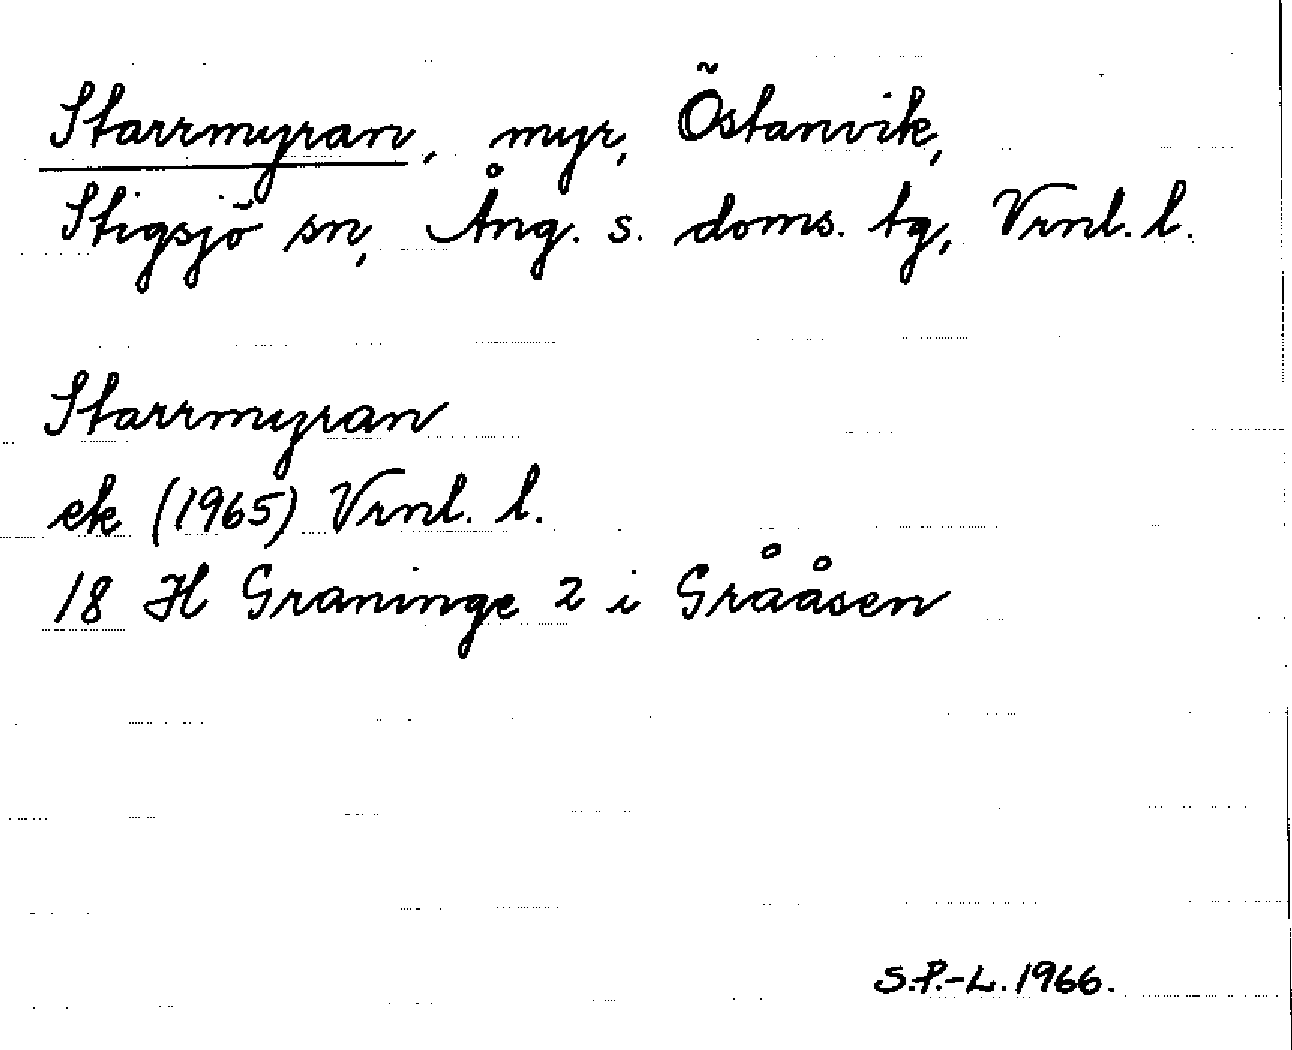 Starrmyran, myr, Östanvik,
Stigsjö sn, Ång. s. doms. tg, Vrnl. l.
Starrmyran
ek (1965) Vrnl. l.
18 H Graninge 2 i Grååsen
S.P.-L. 1966.